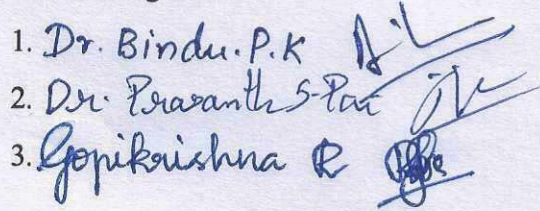 1. Dr. Bindu. P.K
2. Dr. Prasanth S. Pai
3. Gopikrishna R